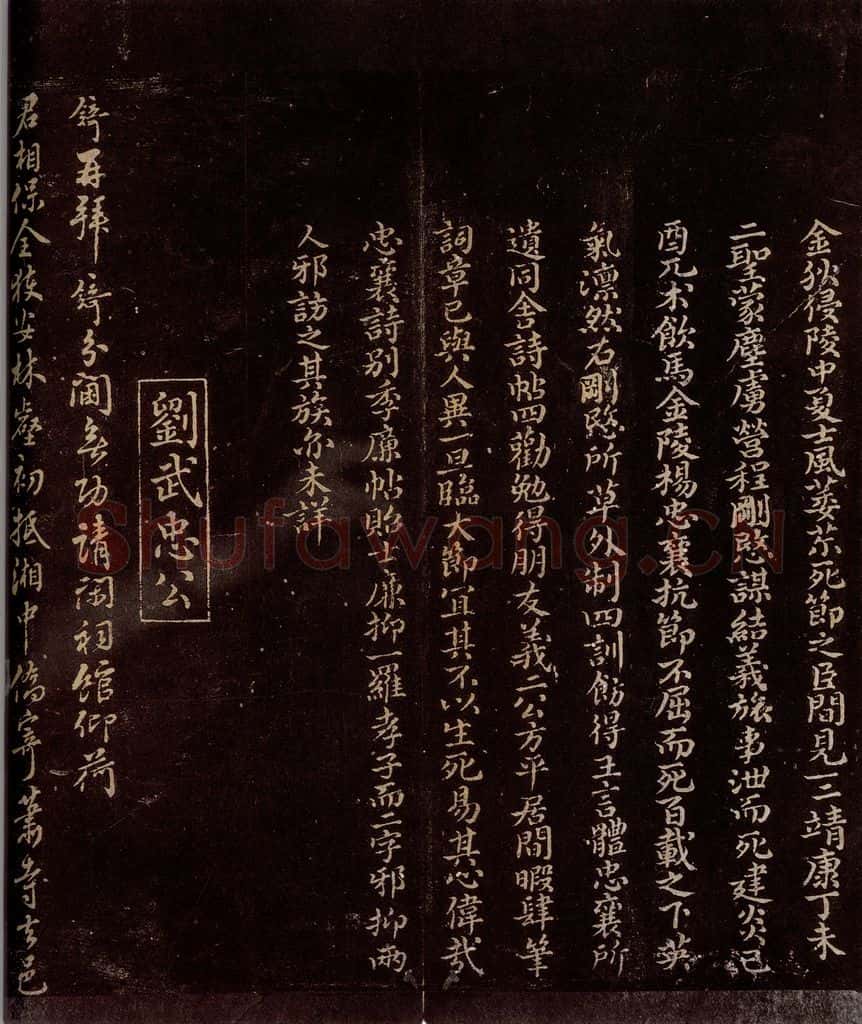 金狄侵陵中夏士風萎苶死節之臣間見一二靖康丁未
二聖蒙塵虜營程剛愍謀結義旅事泄而死建炎己
酉兀朮飲馬金陵楊忠襄抗節不屈而死百載之下英
氣凛然右剛愍所草外制四訓飭得王言體忠襄所
遺同舍詩帖四勸勉得朋友義二公方平居閒暇肆筆
詞章已與人異一旦臨大節冝其不以生死易其心偉哉
忠襄詩別季廉帖貽士廉抑一羅孝子而二字邪抑兩
人邪訪之其族亦未詳
劉武忠公
錡再拜錡分閫無功請閑祠館仰荷
君相保全獲安林壑初抵湘中僑寄蕭寺去邑
Shufawang.CN